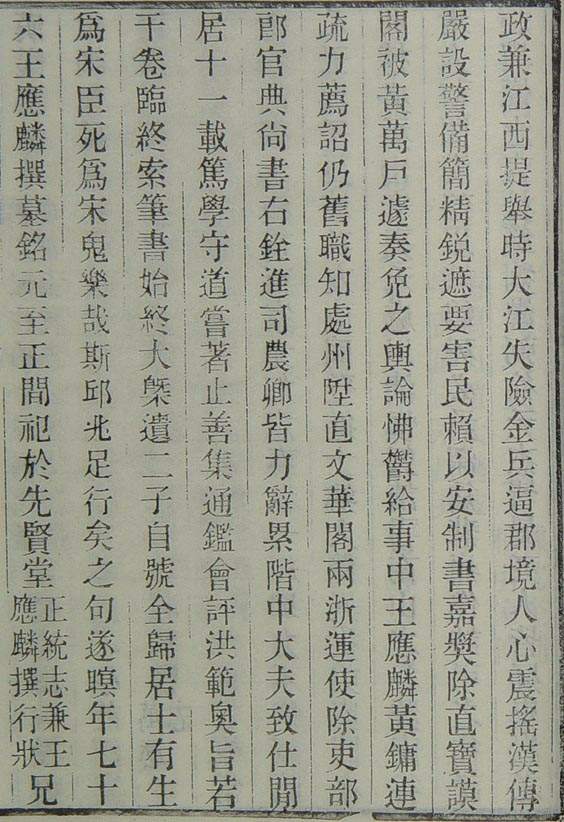 政兼江西提舉時大江失險金兵逼郡境人心震搖漢傳
嚴設警備簡精銳遮要害民賴以安制書嘉奬除直寶謨
閣被黃萬戶遽奏免之輿論怫鬱給事中王應麟黃鏞連
疏力薦詔仍舊職知處州陞直文華閣兩浙運使除吏部
郎官典尚書右銓進司農卿皆力辭累階中大夫致仕閒
居十一載篤學守道嘗著止善集通鑑會評洪範奧旨若
干卷臨終索筆書始終大槩遺二子自號全歸居士有生
爲宋臣死爲宋鬼樂哉斯邱兆足行矣之句遂瞑年七十
六王應麟撰墓銘元至正間祀於先賢堂正統志兼王應麟撰行狀兄